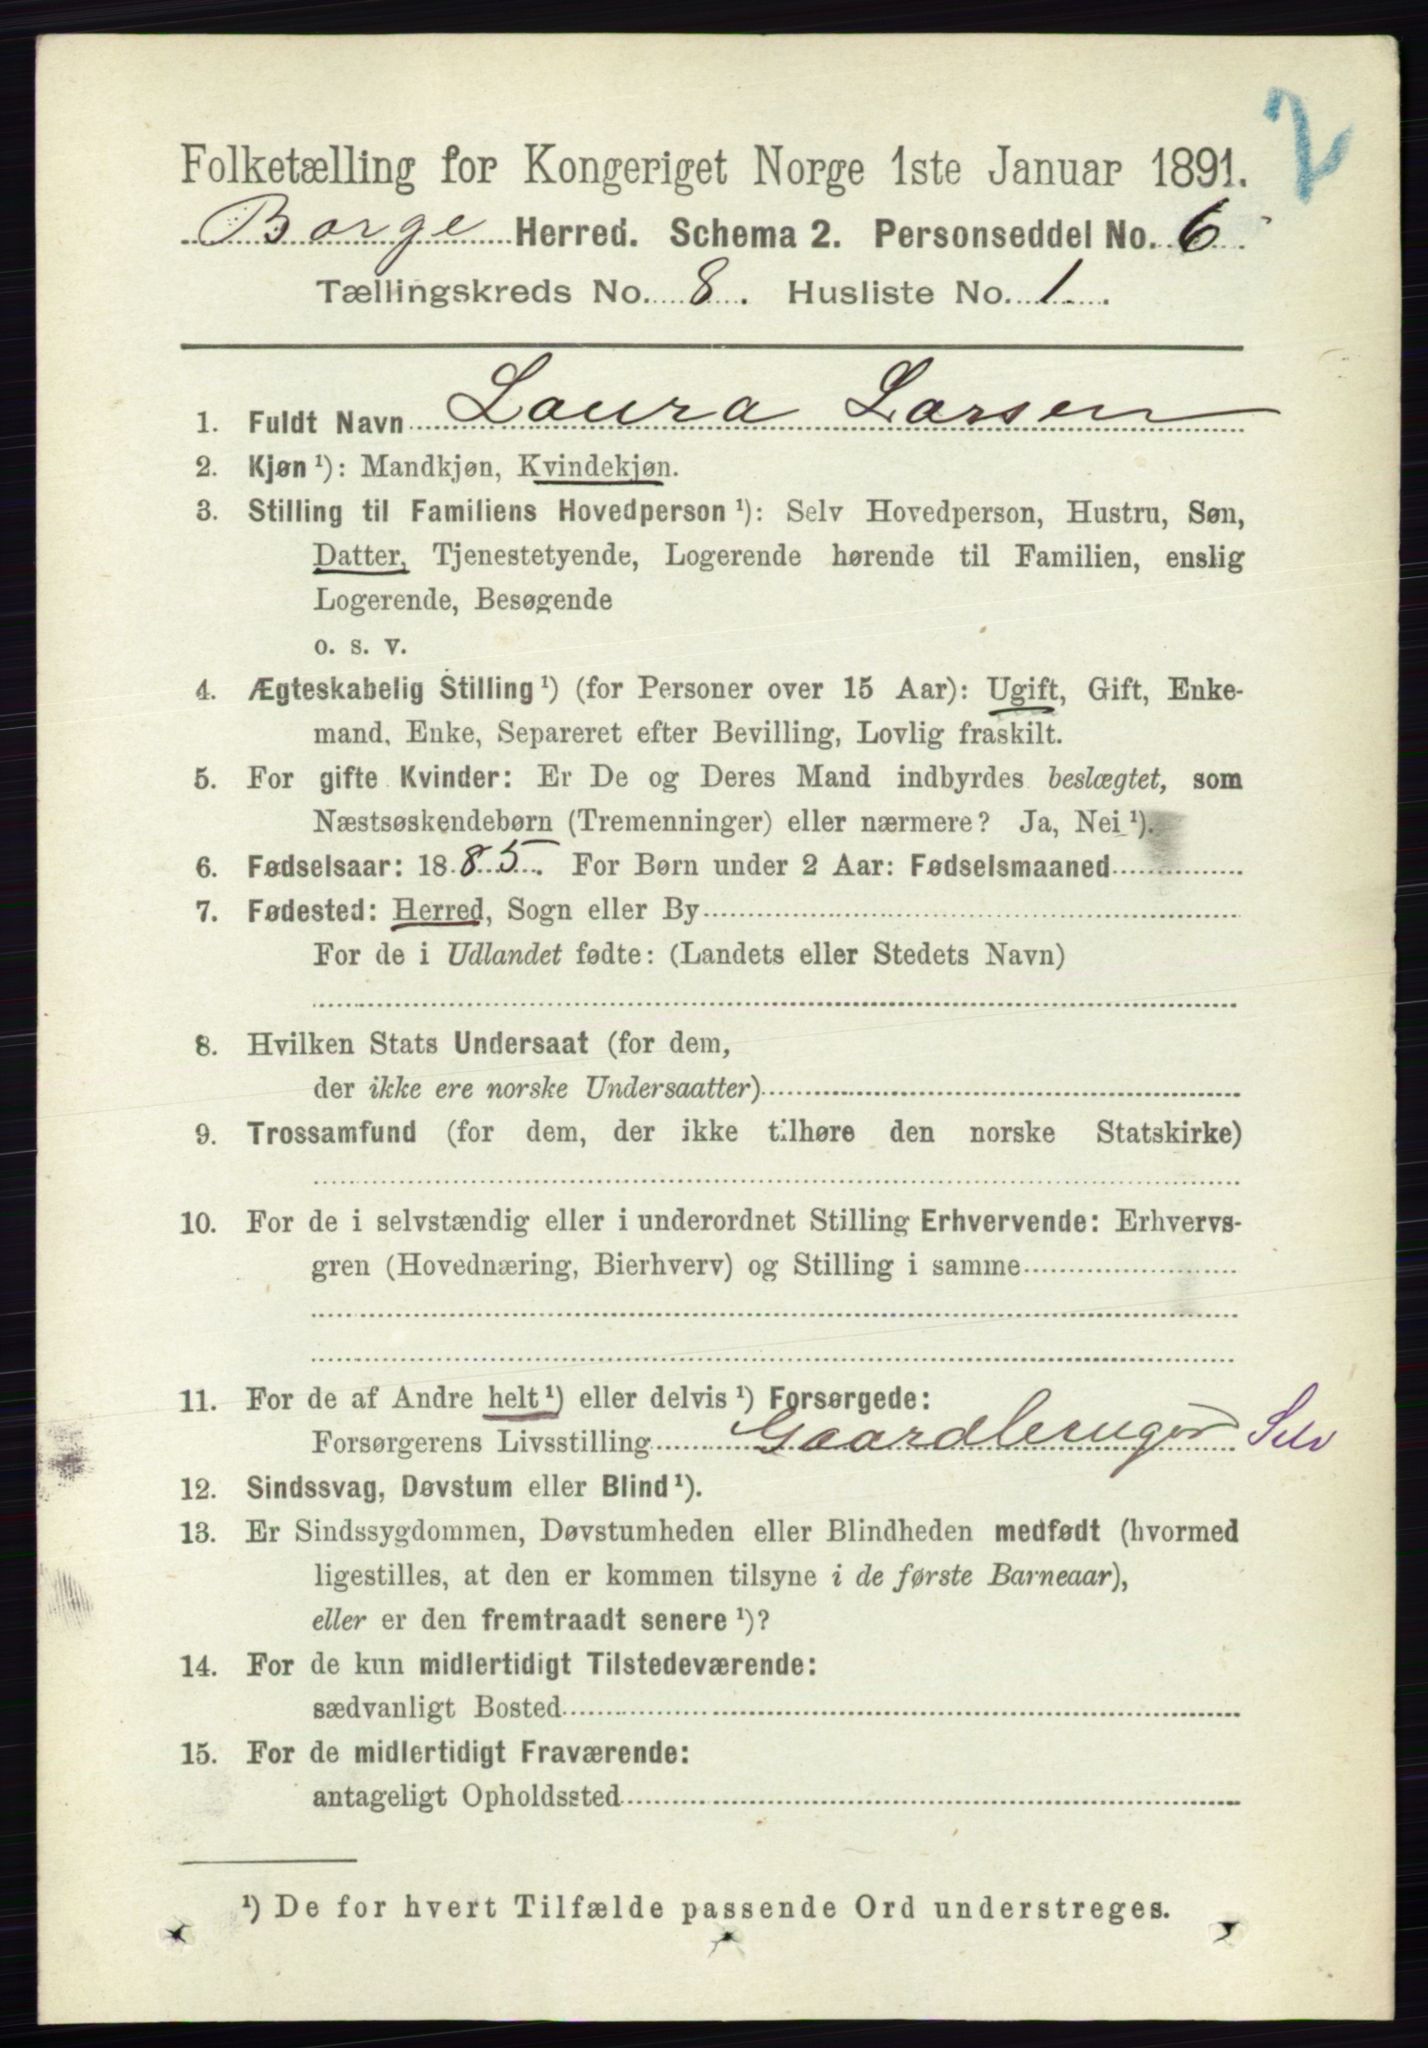 2
Folketælling for Kongeriget Norge 1ste Januar 1891.
Borge Herred. Schema 2. Personseddel No. 6.
Tællingskreds No. 8. Husliste No. 1.
1. Fuldt Navn Laura Larsen
2. Kjøn ¹): Mandkjøn, Kvindekjøn.
3. Stilling til Familiens Hovedperson ¹): Selv Hovedperson, Hustru, Søn,
Datter, Tjenestetyende, Logerende hørende til Familien, enslig
Logerende, Besøgende
o. s. v.
4. Ægteskabelig Stilling ¹) (for Personer over 15 Aar): Ugift, Gift, Enke-
mand, Enke, Separeret efter Bevilling, Lovlig fraskilt.
5. For gifte Kvinder: Er De og Deres Mand indbyrdes beslægtet, som
Næstsøskendebørn (Tremenninger) eller nærmere? Ja, Nei ¹).
6. Fødselsaar: 1885. For Børn under 2 Aar: Fødselsmaaned
7. Fødested: Herred, Sogn eller By
For de i Udlandet fødte: (Landets eller Stedets Navn)
8. Hvilken Stats Undersaat (for dem,
der ikke ere norske Undersaatter)
9. Trossamfund (for dem, der ikke tilhøre den norske Statskirke)
10. For de i selvstændig eller i underordnet Stilling Erhvervende: Erhvervs-
gren (Hovednæring, Bierhverv) og Stilling i samme
11. For de af Andre helt ¹) eller delvis ¹) Forsørgede:
Forsørgerens Livsstilling Gaardbruger Selv
12. Sindssvag, Døvstum eller Blind ¹).
13. Er Sindssygdommen, Døvstumheden eller Blindheden medfødt (hvormed
ligestilles, at den er kommen tilsyne i de første Barneaar),
eller er den fremtraadt senere ¹)?
14. For de kun midlertidigt Tilstedeværende:
sædvanligt Bosted
15. For de midlertidigt Fraværende:
antageligt Opholdssted
¹) De for hvert Tilfælde passende Ord understreges.